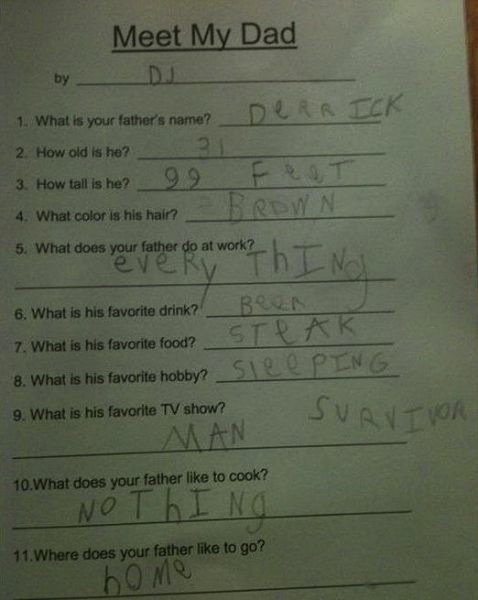 Meet My Dad
by DJ
1. What is your father's name? DeRRICK
2. How old is he? 31
3. How tall is he? 99 FeeT
4. What color is his hair? BROWN
5. What does your father do at work?
eveRy ThINg
6. What is his favorite drink? BeeR
7. What is his favorite food? STeAK
8. What is his favorite hobby? SleePING
9. What is his favorite TV show? SURVIVOR
MAN
10.What does your father like to cook?
NOThINg
11.Where does your father like to go?
hOMe